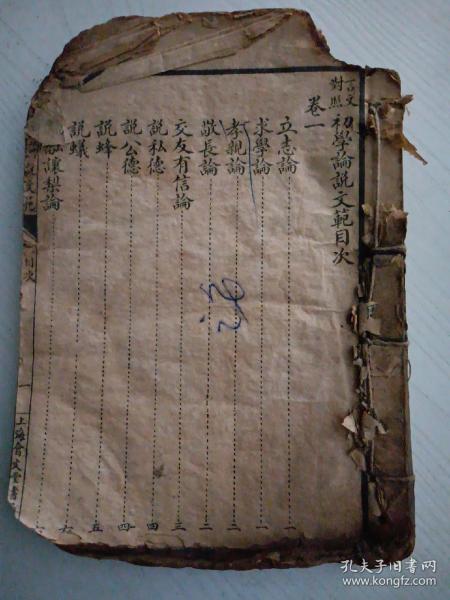 言文對照初學論說文範目次
卷一
立志論 一
求學論 一
孝親論 二
敬長論 二
交友有信論 三
說私德 四
說公德 四
說蜂 五
說蟻 六
讓梨論
上海會文堂書
孔夫子旧书网
www.kongfz.com